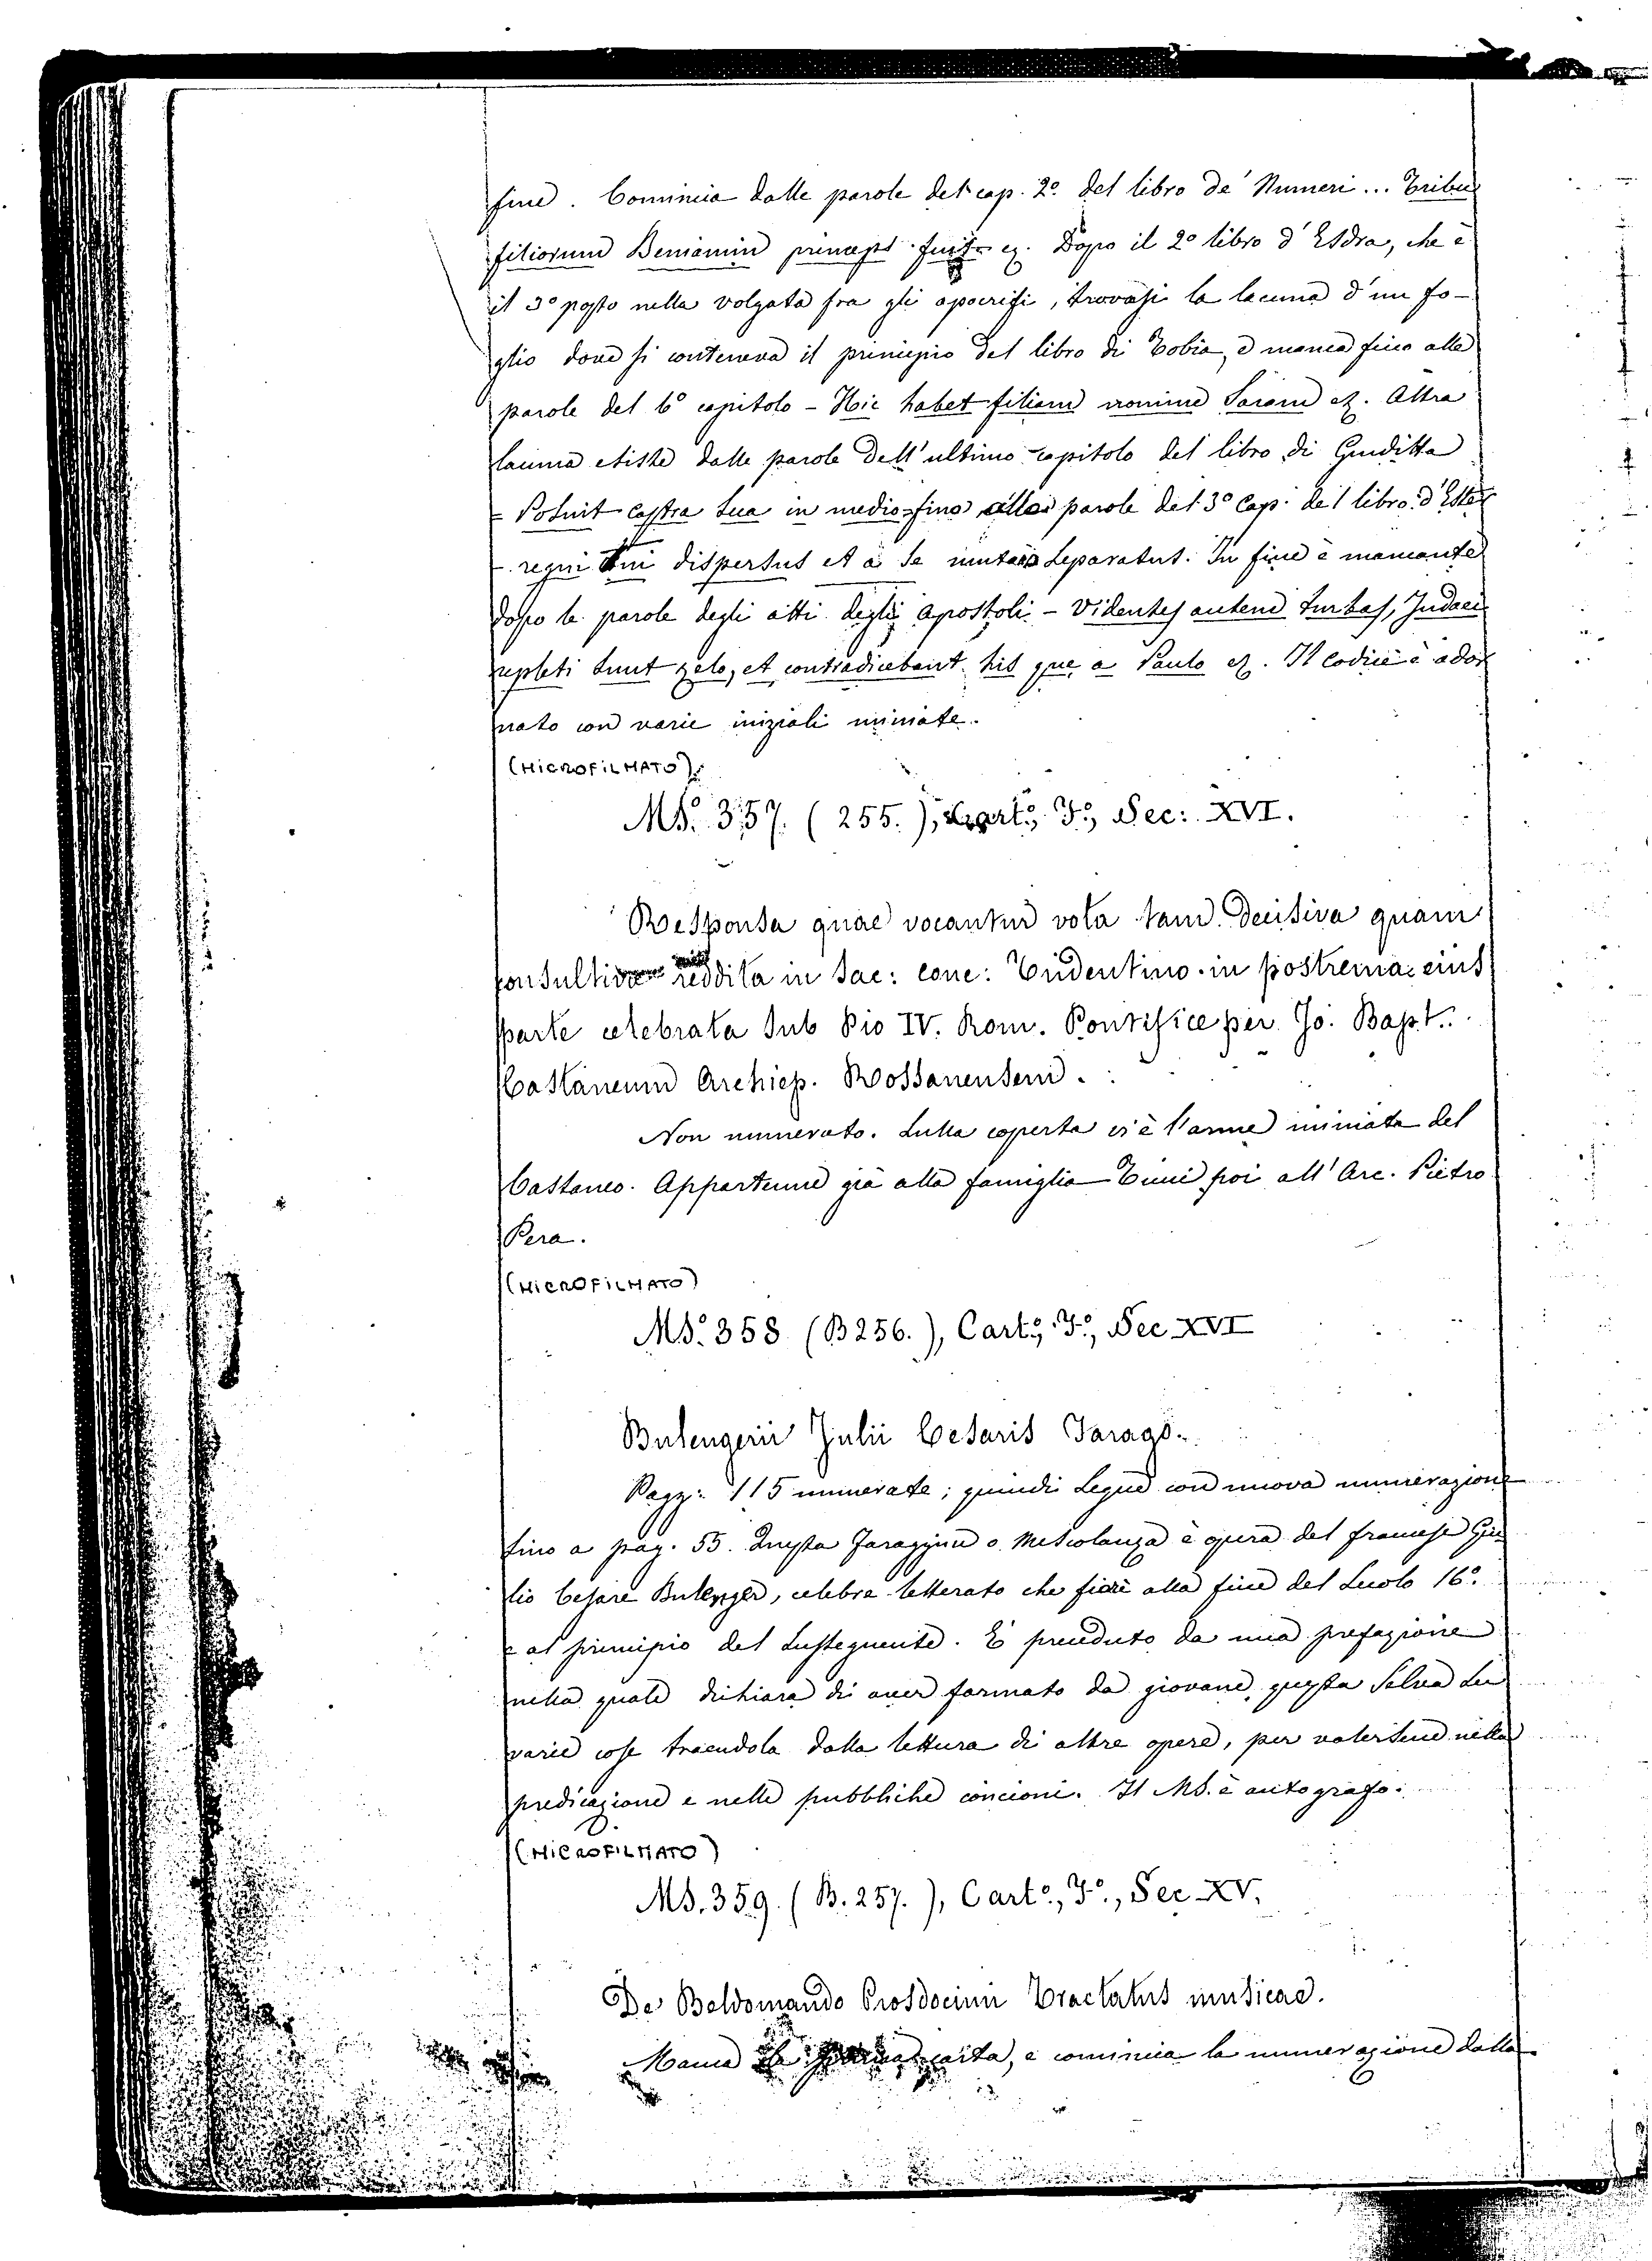 fine. Comincia dalle parole del cap. 2º del libro de' Numeri... Tribu
filiorum Beniamin princeps fuit ez. Dopo il 2º libro d'Esdra, che è
il 3º posto nella volgata fra gli apocrifi, trovasi la lacuna d'un fo-
glio dove si conteneva il principio del libro di Tobia, e manca fino alle
parole del 6º capitolo - Hic habet filiam nomine Saram ez. Altra
lacuna esiste dalle parole dell'ultimo capitolo del libro di Giuditta
- Posuit castra sua in medio - fino alle parole del 3º Cap. del libro d'Ester
- regni tui dispersus et a se separatus. In fine è mancante
dopo le parole degli atti degli Apostoli - Videntes autem turbas, Judaei
repleti sunt zelo, et contradicebant his que a Paulo ez. Il codice è ador
nato con varie iniziali miniate.
(MICROFILMATO)
MS. 357. (255.), Cartº, Fº, Sec: XVI.
Responsa quae vocantur vota tam decisiva quam
consultiva reddita in sac: conc: Tridentino in postrema eius
parte celebrata sub Pio IV. Rom. Pontifice per Jo. Bapt.
Castaneum Archiep. Rossanensem.
Non numerato. Sulla coperta vi è l'arme miniata del
Castaneo. Appartenne già alla famiglia Tini poi all'Arc. Pietro
Pera.
(MICROFILMATO)
MS. 358 (B 256.), Cartº, Fº, Sec XVI
Bulengerii Julii Cesaris Farago.
Pagg: 115 numerate; quindi segue con nuova numerazione
fino a pag. 55. Questa Faraggine o Mescolanza è opera del francese Giu
lio Cesare Bulenger, celebre letterato che fiorì alla fine del secolo 16º.
e al principio del susseguente. È preceduto da una prefazione
nella quale dichiara di aver formato da giovane questa Selva su
varie cose traendola dalla lettura di altre opere, per valersene nella
predicazione e nelle pubbliche concioni. Il MS. è autografo.
(MICROFILMATO)
MS. 359. (B. 257.), Cartº, Fº, Sec XV.
De Beldomando Prosdocimi Tractatus musicae.
Manca la prima carta, e comincia la numerazione dalla